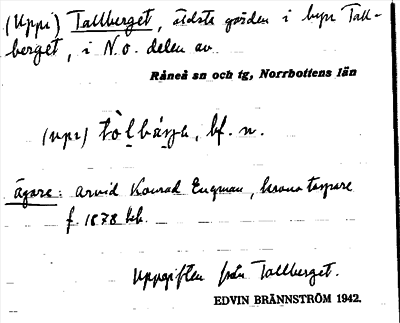 (Uppi) Tallberget, äldste gården i byn Tall-
berget, i N.O. delen av
Råneå sn och tg, Norrbottens län
(upı) tòlbárja, bf. n.
Ägare: Arvid Konrad Engman, krono torpare
f. 1878 hb.
Uppgiften från Tallberget.
EDVIN BRÄNNSTRÖM 1942.